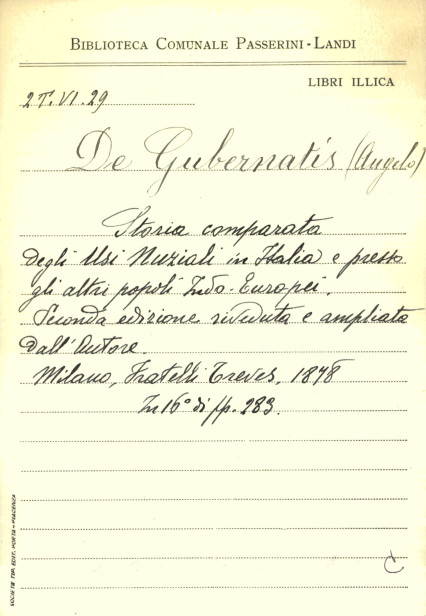 BIBLIOTECA COMUNALE PASSERINI-LANDI
LIBRI ILLICA
2T.VI.29
De Gubernatis (Angelo)
Storia comparata
degli Usi Nuziali in Italia e presso
gli altri popoli Indo-Europei.
Seconda edizione riveduta e ampliata
dall'Autore.
Milano, Fratelli Treves, 1878
In 16° di pp. 283.
C
SOCIETÀ TIP. EDIT. PORTA-PIACENZA